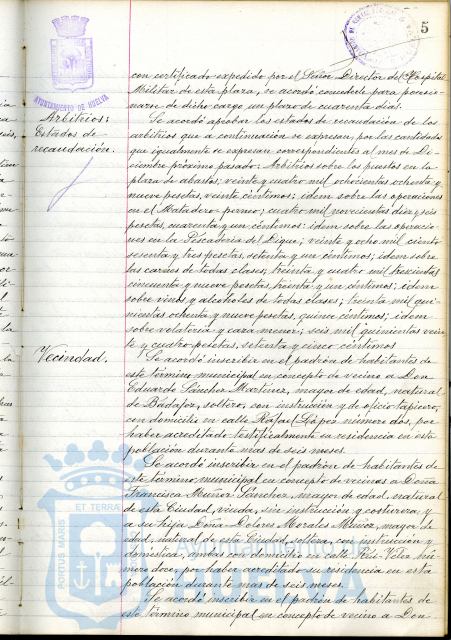 5
AYUNTAMIENTO DE HUELVA
con certificado expedido por el Señor Director del Hospital
Militar de esta plaza, se acordó concederle para posesio-
narse de dicho cargo un plazo de cuarenta dias.
Arbitrios:
Estados de
recaudación.
Se acordó aprobar los estados de recaudación de los
arbitrios que a continuación se expresan, por las cantidades
que igualmente se expresan correspondientes al mes de Di-
ciembre próximo pasado: Arbitrios sobre los puestos en la
plaza de abastos; veinte y cuatro mil ochocientas ochenta y
nueve pesetas, veinte céntimos; idem sobre las operaciones
en el Matadero perneo; cuatro mil novecientas diez y seis
pesetas, cuarenta y un céntimos: idem sobre las operacio-
nes en la Pescaderia del Dique; veinte y ocho mil ciento
sesenta y tres pesetas, setenta y un céntimos; idem sobre
las carnes de todas clases; treinta y cuatro mil trescientas
cincuenta y nueve pesetas, treinta y un céntimos; idem
sobre vinos y alcoholes de todas clases; treinta mil qui-
nientas ochenta y nueve pesetas, quince céntimos; idem
sobre volateria y caza menor; seis mil quinientas vein-
te y cuatro pesetas, setenta y cinco céntimos.
Vecindad.
Se acordó inscribir en el padrón de habitantes de
este término municipal en concepto de vecino a Don
Eduardo Sánchez Martínez, mayor de edad, natural
de Badajoz, soltero, con instrucción y de oficio tapicero,
con domicilio en calle Rafael López número dos, por
haber acreditado testificalmente su residencia en esta
población durante mas de seis meses.
Se acordó inscribir en el padrón de habitantes de
este término municipal en concepto de vecinas a Doña
Francisca Muñoz Sánchez, mayor de edad, natural
de esta Ciudad, viuda, sin instrucción y costurera, y
a su hija Doña Dolores Morales Muñoz, mayor de
edad, natural de esta Ciudad, soltera, con instrucción y
doméstica, ambas con domicilio en calle Vela nú-
mero doce, por haber acreditado su residencia en esta
población durante mas de seis meses.
Se acordó inscribir en el padrón de habitantes de
este término municipal en concepto de vecino a Don
PORTUS MARIS ET TERRAE